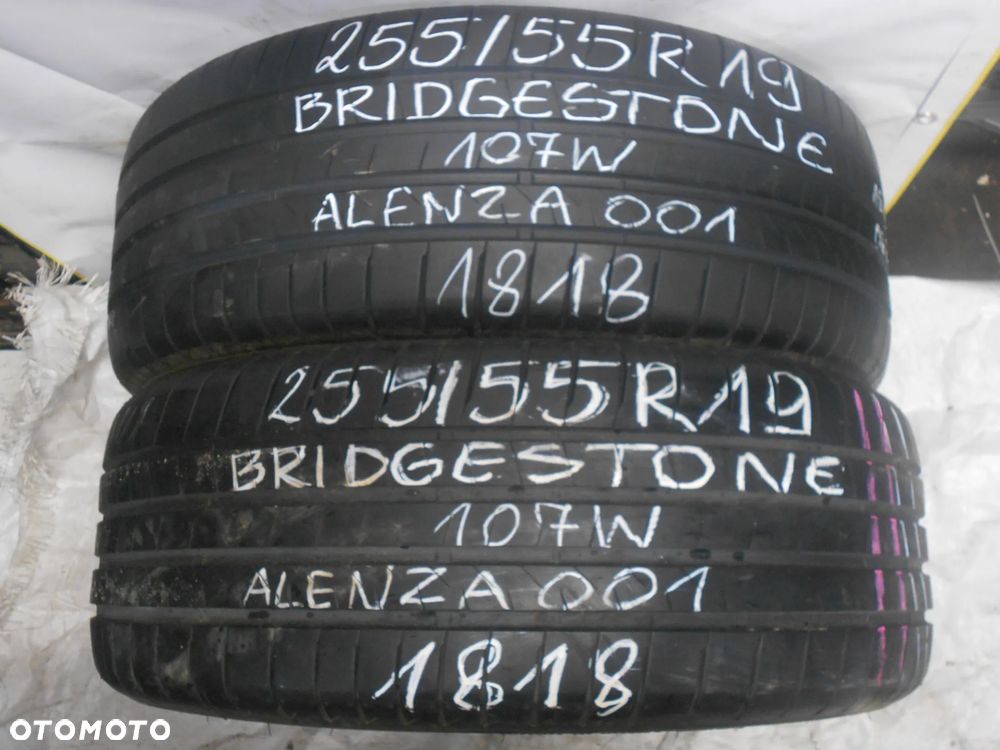 255/55R19
BRIDGESTONE
107W
ALENZA 001
1818
255/55R19
BRIDGESTONE
107W
ALENZA 001
1818
OTOMOTO